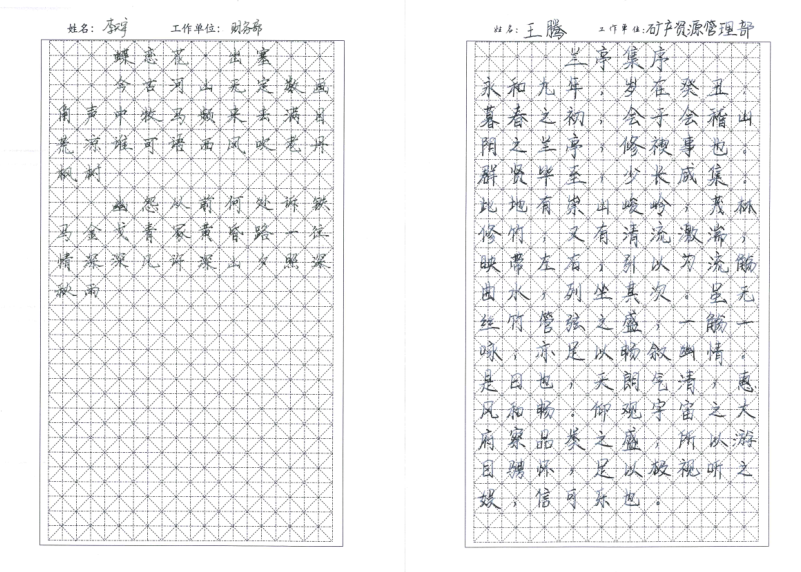 姓名：李 工作单位：财务部
蝶恋花·出塞
今古河山无定数画
角声中牧马频来去满目
荒凉谁可语西风吹老丹
枫树
幽怨从前何处诉铁
马金戈青冢黄昏路一往
情深深几许深山夕照深
秋雨
姓名：王腾 工作单位：矿产资源管理部
兰亭集序
永和九年，岁在癸丑，
暮春之初，会于会稽山
阴之兰亭，修禊事也。
群贤毕至，少长咸集。
此地有崇山峻岭，茂林
修竹，又有清流激湍，
映带左右，引以为流觞
曲水，列坐其次。虽无
丝竹管弦之盛，一觞一
咏，亦足以畅叙幽情。
是日也，天朗气清，惠
风和畅。仰观宇宙之大
府察品类之盛，所以游
目骋怀，足以极视听之
娱，信可乐也。